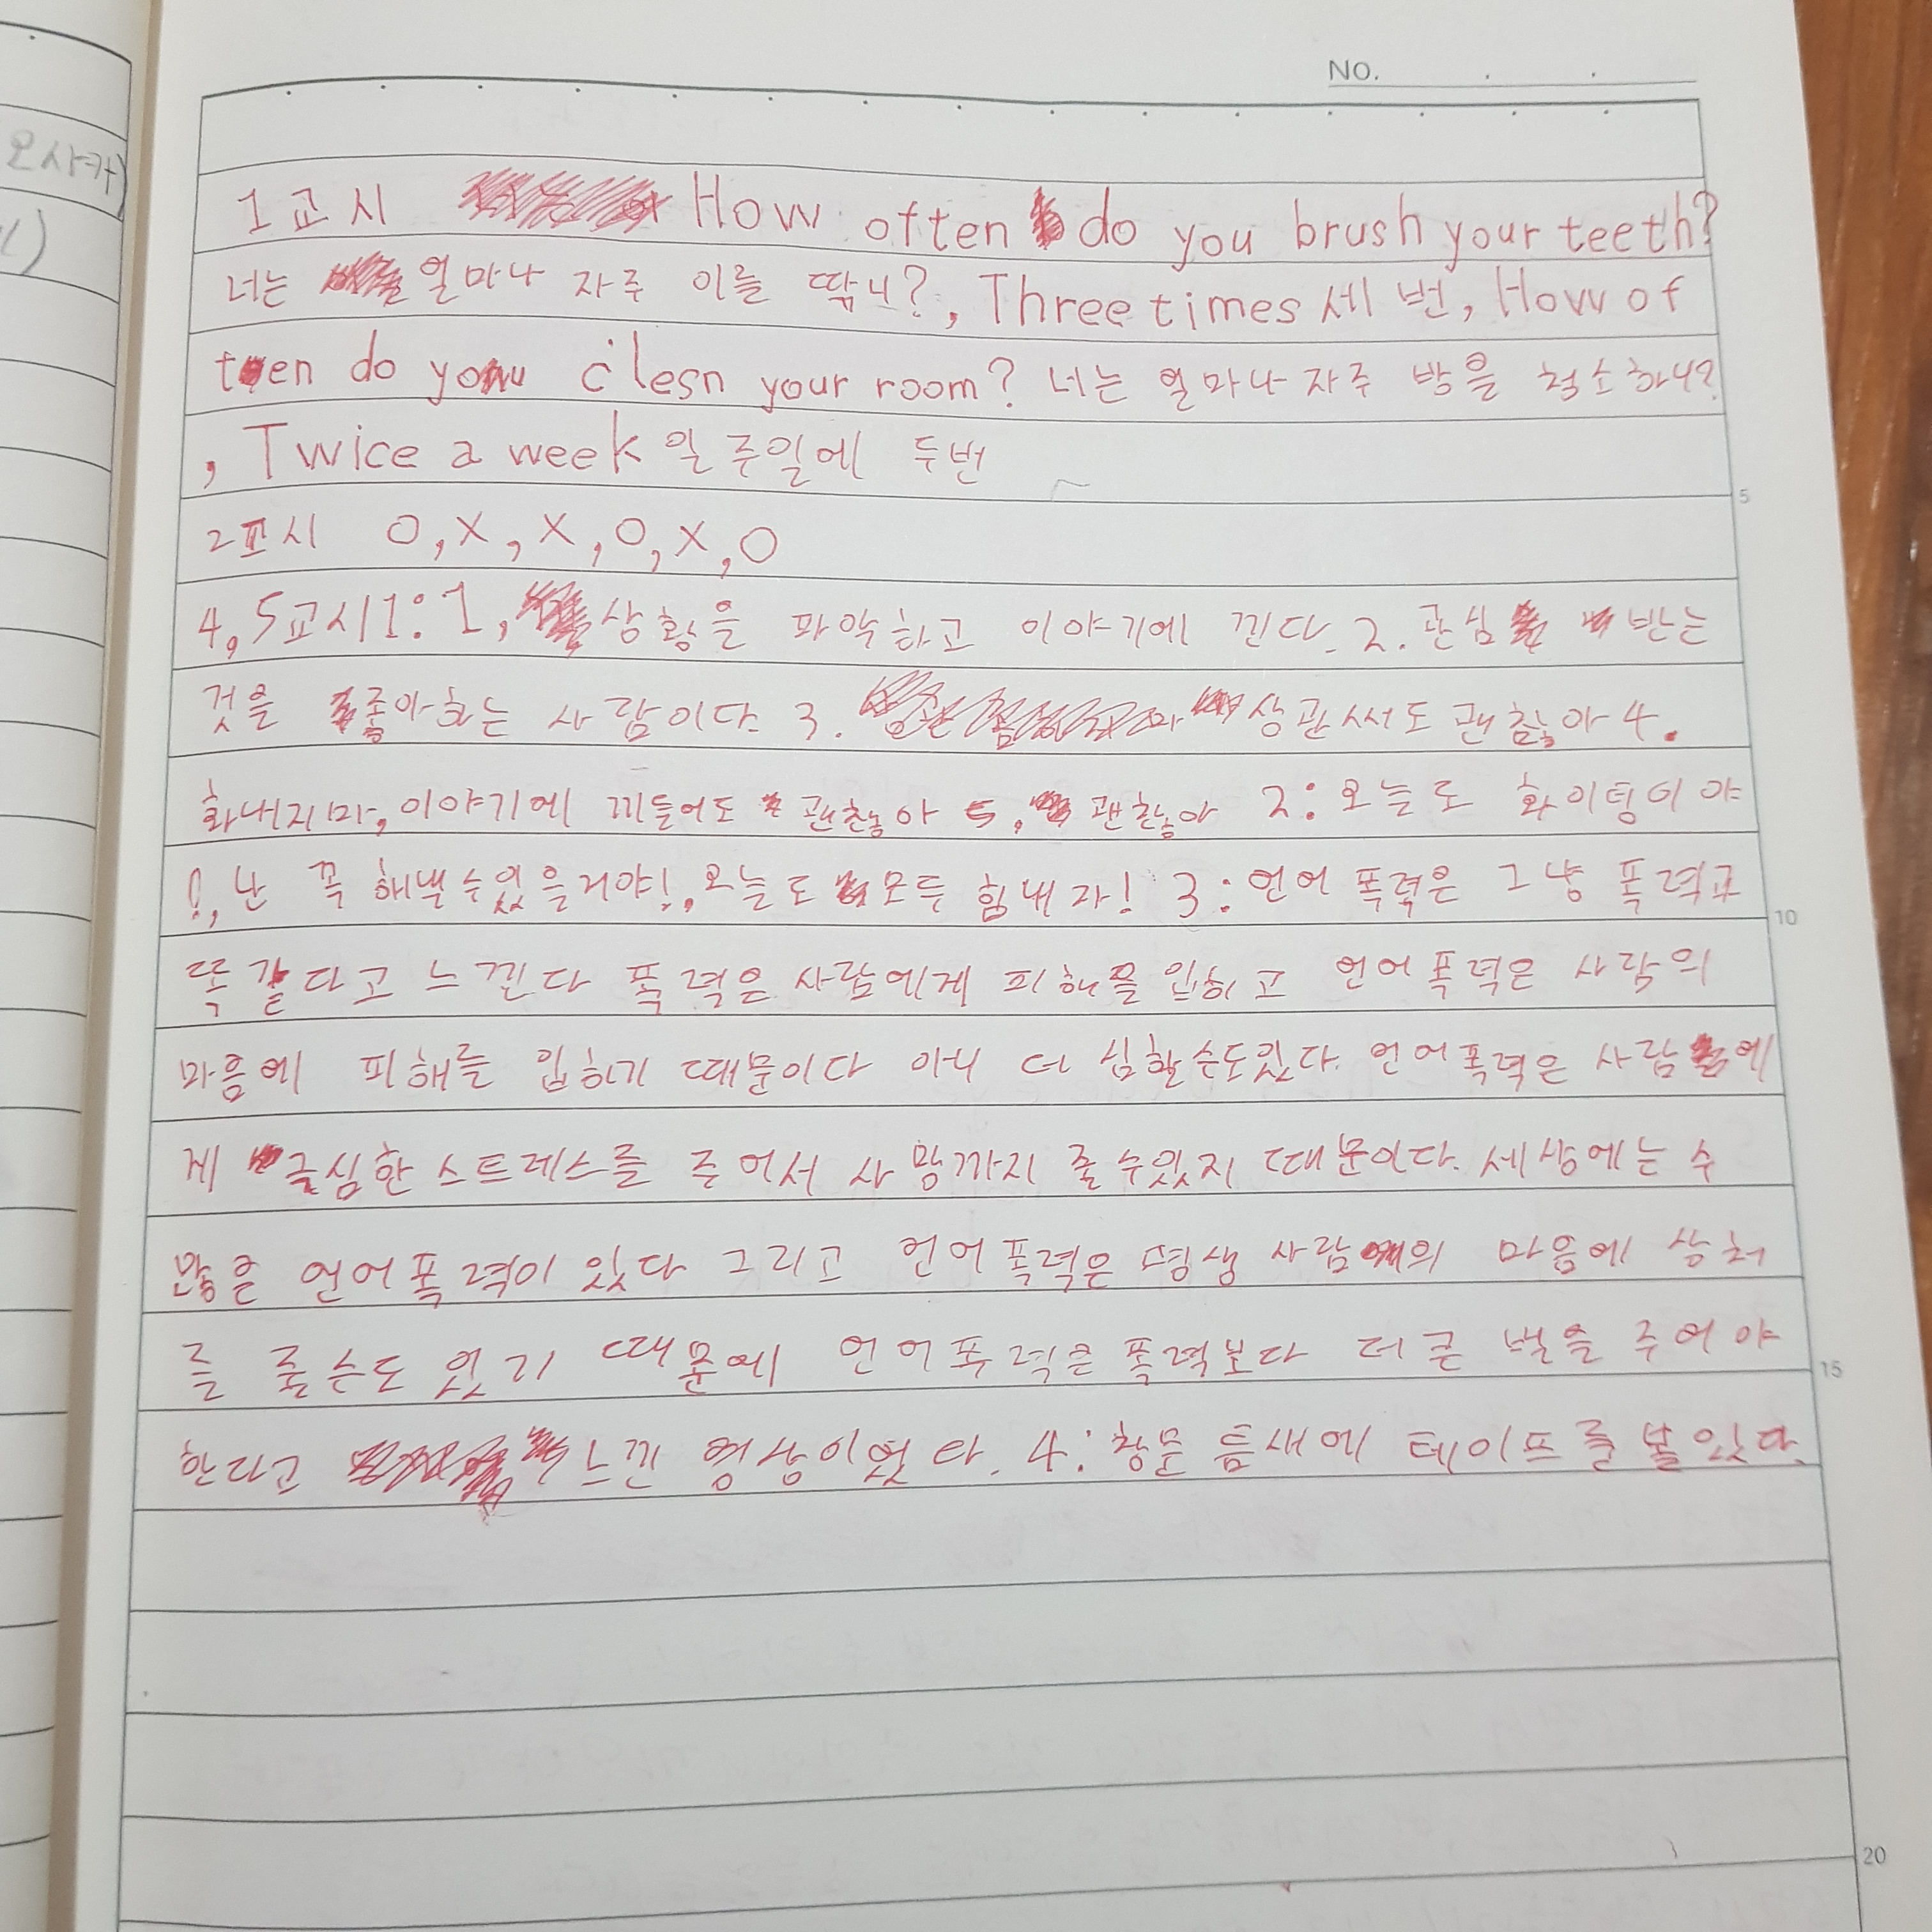 NO.
오사카)
1교시 How often do you brush your teeth?
너는 얼마나 자주 이를 딲니?, Three times 세 번, How of
ten do you clesn your room? 너는 얼마나 자주 방을 청소하니?
, Twice a week 일주일에 두번
2교시 O, X, X, O, X, O
4, 5교시 1: 1, 상황을 파악하고 이야기에 낀다. 2. 관심 받는
것을 좋아하는 사람이다 3. 상관써도 괜찮아 4.
화내지마, 이야기에 끼들어도 괜찮아 5, 괜찮아 2: 오늘도 화이팅이야
!, 난 꼭 해낼수있을거야!, 오늘도 모두 힘내자! 3: 언어 폭력은 그냥 폭력과
똑같다고 느낀다 폭력은 사람에게 피해를 입히고 언어폭력은 사람의
마음에 피해를 입히기 때문이다 아니 더 심할수도있다. 언어폭력은 사람에
게 극심한 스트레스를 주어서 사망까지 줄수있지 때문이다. 세상에는 수
많을 언어폭력이 있다 그리고 언어폭력은 평생 사람의 마음에 상처
를 줄수도 있기 때문에 언어폭력은 폭력보다 더 큰 벌을 주어야
한다고 느낀 영상이었다. 4: 창문 틈새에 테이프를 붙있다.
5
10
15
20